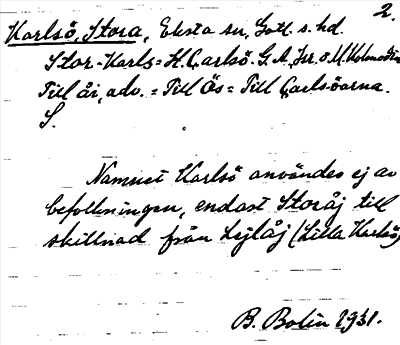 2.
Karlsö, Stora, Eksta sn, Gotl. s. hd.
Stor-Karls = K. Carlsö. G. A,
Till åi, adv. = Till Ös = Till Carlsöarna.
S.
Namnet Karlsö användes ej av
befolkningen, endast Storåj till
skillnad från Lejlåj (Lilla Karlsö)
B. Bolin 1931.